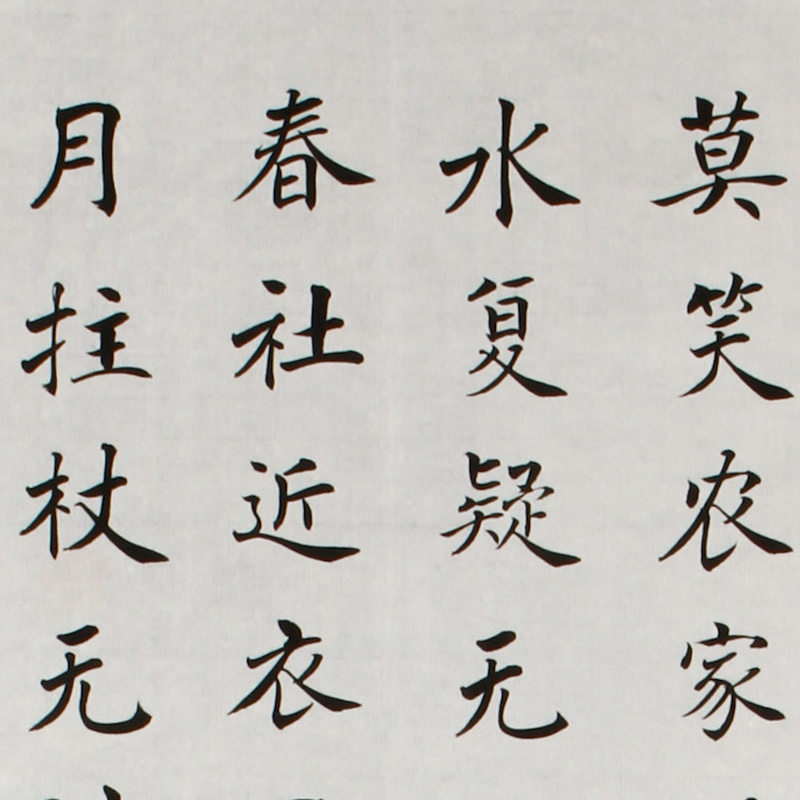 莫笑农家
水复疑无
春社近衣
月拄杖无